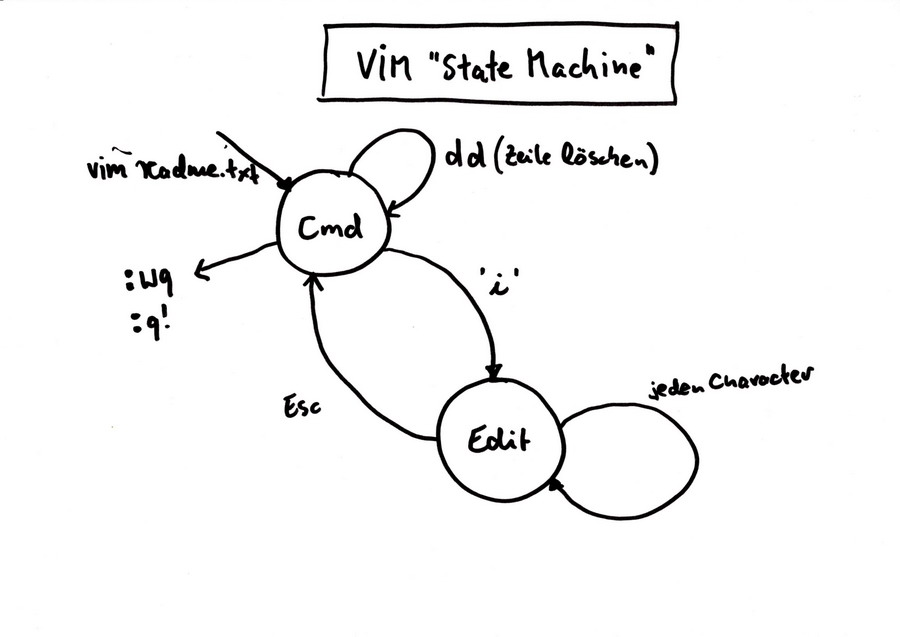 Vim "State Machine"
vim readme.txt
dd (Zeile löschen)
Cmd
:wq
:q!
'i'
Esc
Edit
jeden Character